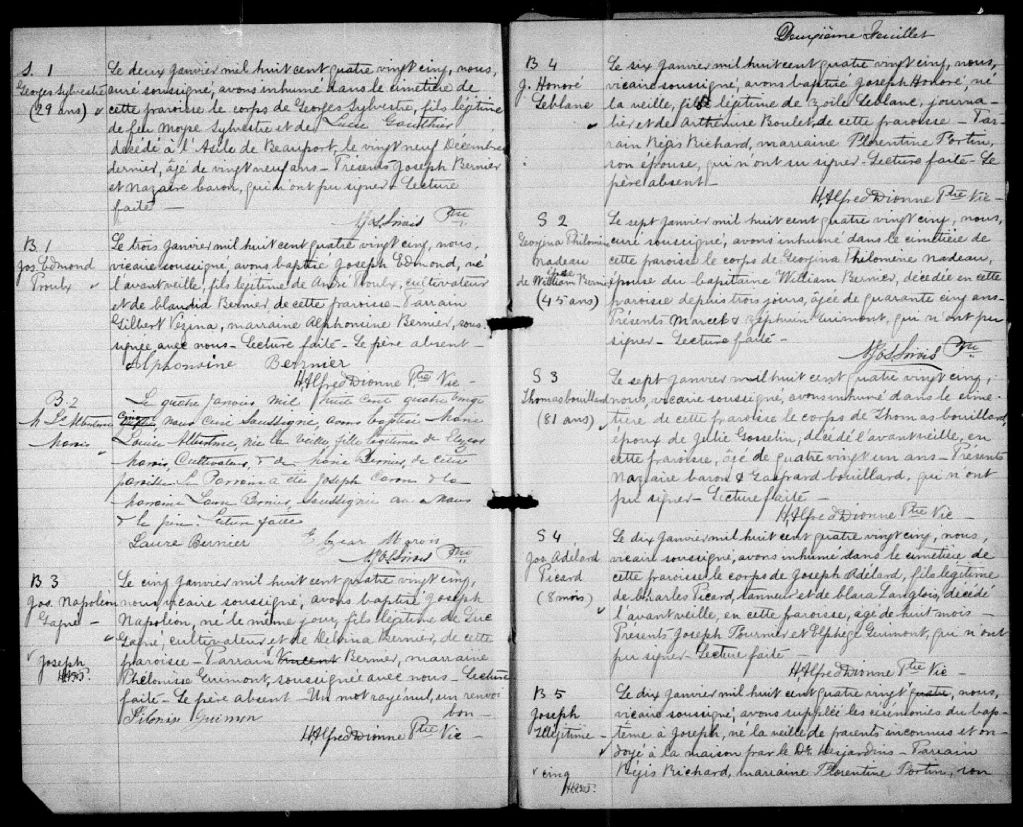 S. 1
Georges Sylvestre
(29 ans)
Le deux Janvier mil huit cent quatre vingt cinq, nous,
curé soussigné, avons inhumé dans le cimetière de
cette paroisse le corps de Georges Sylvestre, fils légitime
de feu Moyse Sylvestre et de Luce Gauthier
décédé à l'Asile de Beauport, le vingt neuf Décembre
dernier, âgé de vingt neuf ans – Présents Joseph Bernier
et Nazaire Caron, qui n'ont pu signer – Lecture
faite –
Ptre
B 1
Jos. Edmond
Proulx
Le trois Janvier mil huit cent quatre vingt cinq, nous,
vicaire soussigné, avons baptisé Joseph Edmond, né
l'avant veille, fils légitime de André Proulx, cultivateur
et de Claudia Bernier de cette paroisse – Parrain
Gilbert Vézina, marraine Alphonsine Bernier, sous-
signée avec nous – Lecture faite – Le père absent –
Alphonsine Bernier
H. Alfred Dionne Ptre Vic –
B. 2
M Ls Albertine
Marois
Le quatre Janvier mil huit cent quatre vingt
Cinq nous Curé Soussigné, avons baptisé Marie
Louise Albertine, née la veille fille légitime de
Marois, Cultivateur, & de Marie Bernier, de cette
paroisse Le Parrain a été Joseph Caron & la
marraine Laure Bernier, Soussignée avec Nous
& le père. Lecture faite
Laure Bernier
Ptre
B 3
Jos. Napoléon
Gagné –
Joseph
Le cinq Janvier mil huit cent quatre vingt cinq,
nous vicaire soussigné, avons baptisé Joseph
Napoléon, né le même jour, fils légitime de Luc
Gagné, cultivateur et de Delvina Bernier, de cette
paroisse – Parrain Vincent Bernier, marraine
Phélonise Guimont, soussignée avec nous – Lecture
faite – Le père absent – Un mot rayé nul, un renvoi
bon –
H. Alfred Dionne Ptre Vic –
Deuxième Feuillet
B 4
J. Honoré
Leblanc
Le six Janvier mil huit cent quatre vingt cinq, nous,
vicaire soussigné, avons baptisé Joseph Honoré, né
la veille, fils légitime de Zoïle Leblanc, journa-
lier et de Arthémise Boulet, de cette paroisse – Par-
rain Régis Richard, marraine Florentine Fortin,
son épouse, qui n'ont su signer – Lecture faite – Le
père absent –
H. Alfred Dionne Ptre Vic –
S 2
Georgina Philomène
Nadeau
Epse
de William Bernier
(45 ans)
Le sept Janvier mil huit cent quatre vingt cinq, nous,
curé soussigné, avons inhumé dans le cimetière de
cette paroisse le corps de Georgina Philomène Nadeau,
épouse du Capitaine William Bernier, décédée en cette
paroisse depuis trois jours, âgée de quarante cinq ans –
Présents Marcel & Zéphirin Guimont, qui n'ont pu
signer – Lecture faite –
Ptre
S 3
Thomas Bouillard
(81 ans)
Le sept Janvier mil huit cent quatre vingt cinq,
nous, vicaire soussigné, avons inhumé dans le cime-
tière de cette paroisse le corps de Thomas Bouillard,
époux de Julie Gosselin, décédé l'avant veille, en
cette paroisse, âgé de quatre vingt un ans – Présents
Nazaire Caron & Gaspard Bouillard, qui n'ont
pu signer – Lecture faite –
H. Alfred Dionne Ptre Vic –
S 4
Jos. Adélard
Picard
(8 mois)
Le dix Janvier mil huit cent quatre vingt cinq, nous,
vicaire soussigné, avons inhumé dans le cimetière de
cette paroisse le corps de Joseph Adélard, fils légitime
de Charles Picard, tanneur et de Clara Langlois, décédé
l'avant veille, en cette paroisse, agé de huit mois –
Présents Joseph Fournier et Elphège Guimont, qui n'ont
pu signer – Lecture faite –
H. Alfred Dionne Ptre Vic –
B 5
Joseph
Illégitime –
cinq
Le dix Janvier mil huit cent quatre vingt quatre, nous,
vicaire soussigné, avons suppléé les cérémonies du bap-
tême à Joseph, né la veille de parents inconnus et on-
doyé à la maison par le Dr. Desjardins – Parrain
Régis Richard, marraine Florentine Fortin, son